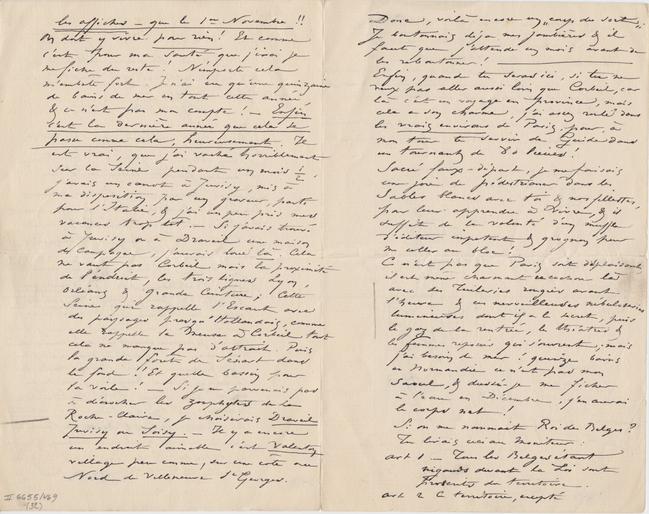 les affiches – que le 1er Novembre !!
On doit y vivre pour rien ! Et comme
c'est pour ma santé que j'irai je
me fiche du reste ! N'importe cela
m'embête fort. J'n'ai eu qu'une quinzaine
de bains de mer en tout cette année
& ce n'est pas mon compte ! – Enfin
c'est la dernière année que cela se
passe comme cela, heureusement. Il
est vrai, que j'ai vaché horriblement
sur la Seine pendant un mois 1/2
j'avais un canot à Juvisy, mis à
ma disposition par un graveur, parti
pour l'Italie, & j'ai un peu pris mes
vacances trop tôt – Si j'avais trouvé
à Juvisy ou à Draveil une maison
de campagne, j'aurais loué là. Cela
ne vaut pas Corbeil mais la proximité
de l'endroit, les trois lignes Lyon,
Orléans & Grande Ceinture ; Cette
Seine qui rappelle l'Escaut avec
des paysages presqu'Hollandais, comme
elle rappelle la Meuse à Corbeil tout
cela ne manque pas d'attrait. Puis
la grande forêt de Sénart dans
le fond !! Et quelle bassin pour
la voile ! – Si je parvenais pas
à dénicher les
Roche-Claire, je choisirais Draveil
Juvisy ou Soisy – Il y a encore
un endroit aimable c'est Valenton
village peu connu, sur une côte au
Nord de Villeneuve St Georges.
II 6655/469
(32)
Donc, voilà encore un "coup du sort".
Je boutonnais déjà mes jambières & il
faut que j'attende un mois avant de
les reboutonner !
Enfin, quand tu seras ici, si tu ne
veux pas aller aussi loin que Corbeil, car
là c'est un voyage en province, mais
cela a son charme, j'ai assez roulé dans
les vrais environs de Paris, pour, à
mon tour te servir de Guide dans
un tournant de 20 lieues !
Sacré faux-départ, je me faisais
une joie de pédestriner dans les
Sables blancs avec toi & nos fillettes,
pour leur apprendre à vivre, & il
suffit de la volonté d'un muffle
d'éditeur impotent & grognon pour
me coller au bloc !
C n'est pas que Paris soit déplaisant
il est même charmant en octobre là
avec des Tuileries rougies avant
l'heure & ces merveilleuses nébulosités
lumineuses dont il a le secret, puis
le gaz de la rentrée, les théâtres &
les femmes reposées qui s'ouvrent, mais
j'ai besoin de mer ! quinze bains
en Normandie ce n'est pas mon
Saoul, & dussé-je me ficher
à l'eau en Décembre, j'en aurai
le corps net !
Si on me nommait Roi des Belges ?
Tu lirais ceci au Moniteur :
art 1 – Tous les Belges étant
égaux devant la Loi sont
du territoire.
art 2 C territoire, excepté